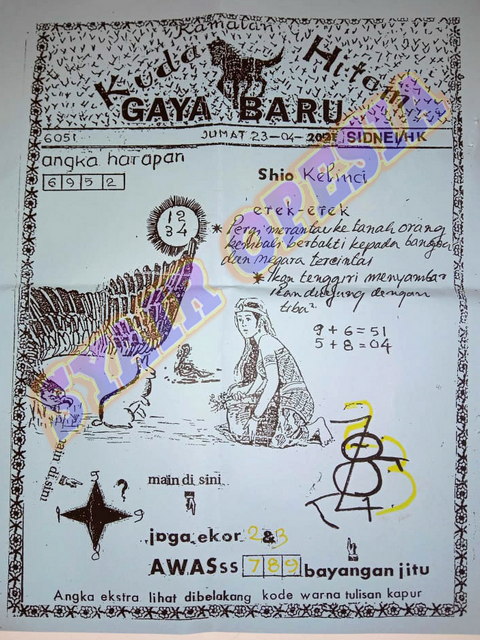 Ramalan
Kuda Hitam
GAYA BARU
6051 JUMAT 23-04-2021 SIDNEI/HK
angka harapan
6952
Shio Kelinci
12
34
erek-erek
* Pergi merantau ke tanah orang
kembali berbakti kepada bangsa
dan negara tercintas
* Ikan tenggiri menyambar
ikan ditujung dengan
tiba²
9+6=51
5+8=04
SYAIR OPESIA
main di sini
main di sini
?
jaga ekor 2&3
AWASss 789 bayangan jitu
Angka ekstra lihat dibelakang kode warna tulisan kapur